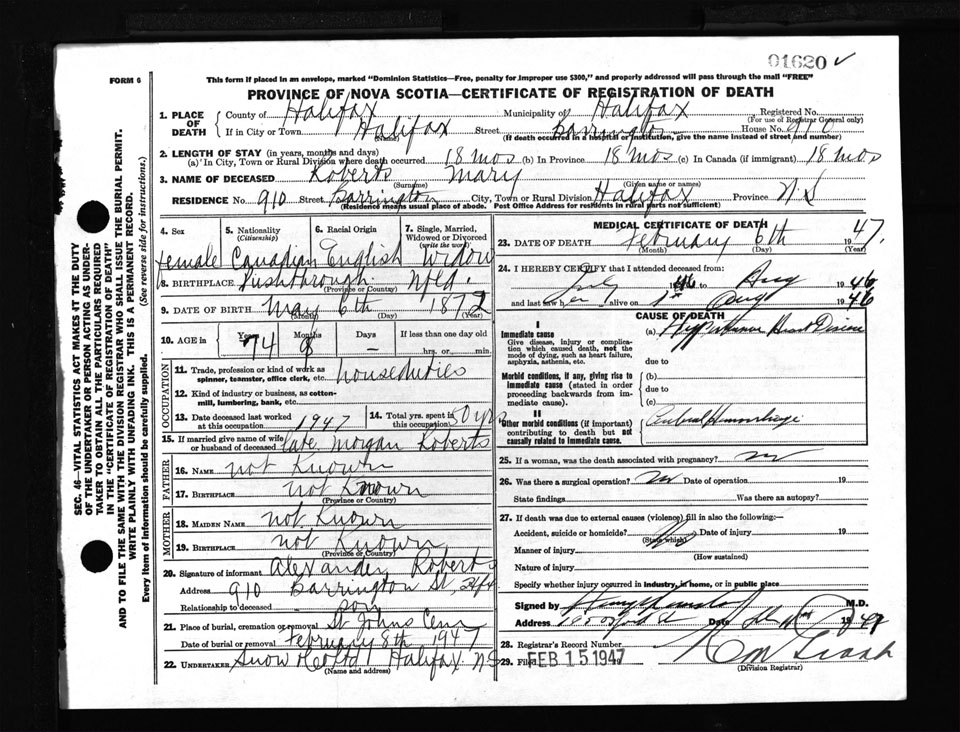 01620
FORM 6
This form if placed in an envelope, marked "Dominion Statistics—Free, penalty for improper use $300," and properly addressed will pass through the mail "FREE"
PROVINCE OF NOVA SCOTIA—CERTIFICATE OF REGISTRATION OF DEATH
1. PLACE OF DEATH
County of Halifax Municipality of Halifax Registered No.
(For use of Registrar General only)
If in City or Town Halifax Street Barrington House No. 910
(Name) (If death occurred in a hospital or institution, give the name instead of street and number)
2. LENGTH OF STAY (in years, months and days)
(a) In City, Town or Rural Division where death occurred 18 mos (b) In Province 18 mos (c) In Canada (if immigrant) 18 mos
3. NAME OF DECEASED Roberts Mary
(Surname) (Given name or names)
RESIDENCE No. 910 Street Barrington City, Town or Rural Division Halifax Province N.S
(Residence means usual place of abode. Post Office Address for residents in rural parts not sufficient)
4. Sex 5. Nationality (Citizenship) 6. Racial Origin 7. Single, Married, Widowed or Divorced (write the word)
Female Canadian English Widow
8. BIRTHPLACE Pushthrough Nfld.
(Province or Country)
9. DATE OF BIRTH May 6th 1872
(Month) (Day) (Year)
10. AGE in Years Months Days If less than one day old
74 8 – hrs. or min.
OCCUPATION
11. Trade, profession or kind of work as spinner, teamster, office clerk, etc. houseduties
12. Kind of industry or business, as cotton-mill, lumbering, bank, etc.
13. Date deceased last worked at this occupation 1947
14. Total yrs. spent in this occupation 50 yrs
15. If married give name of wife or husband of deceased late Morgan Roberts
FATHER
16. NAME not Known
17. BIRTHPLACE not Known
(Province or Country)
MOTHER
18. MAIDEN NAME not Known
19. BIRTHPLACE not Known
(Province or Country)
20. Signature of informant Alexander Roberts
Address 910 Barrington St, Hfx
Relationship to deceased son
21. Place of burial, cremation or removal St Johns Cem
Date of burial or removal February 8th 1947
22. UNDERTAKER Snow Halifax NS
(Name and address)
MEDICAL CERTIFICATE OF DEATH
23. DATE OF DEATH February 6th 1947.
(Month) (Day) (Year)
24. I HEREBY CERTIFY that I attended deceased from:
July 1946 to Aug 1946
and last saw h er alive on 1st Aug 1946
CAUSE OF DEATH
I
Immediate cause
Give disease, injury or complication which caused death, not the mode of dying, such as heart failure, asphyxia, asthenia, etc.
(a) Heart Disease
due to
Morbid conditions, if any, giving rise to immediate cause (stated in order proceeding backwards from immediate cause).
(b)
due to
(c)
II
Other morbid conditions (if important) contributing to death but not causally related to immediate cause.
Cerebral Hemorrhage
25. If a woman, was the death associated with pregnancy? no
26. Was there a surgical operation? no Date of operation 19
State findings Was there an autopsy?
27. If death was due to external causes (violence) fill in also the following:—
Accident, suicide or homicide? Date of injury 19
(State which)
Manner of injury
(How sustained)
Nature of injury
Specify whether injury occurred in industry, in home, or in public place
Signed by M.D.
Address Date 19
28. Registrar's Record Number
29. Filed FEB 15 1947
(Division Registrar)
SEC. 46—VITAL STATISTICS ACT MAKES IT THE DUTY
OF THE UNDERTAKER OR PERSON ACTING AS UNDERTAKER TO OBTAIN ALL THE PARTICULARS REQUIRED
IN THE "CERTIFICATE OF REGISTRATION OF DEATH"
AND TO FILE THE SAME WITH THE DIVISION REGISTRAR WHO SHALL ISSUE THE BURIAL PERMIT.
WRITE PLAINLY WITH UNFADING INK. THIS IS A PERMANENT RECORD.
Every item of Information should be carefully supplied. (See reverse side for instructions.)